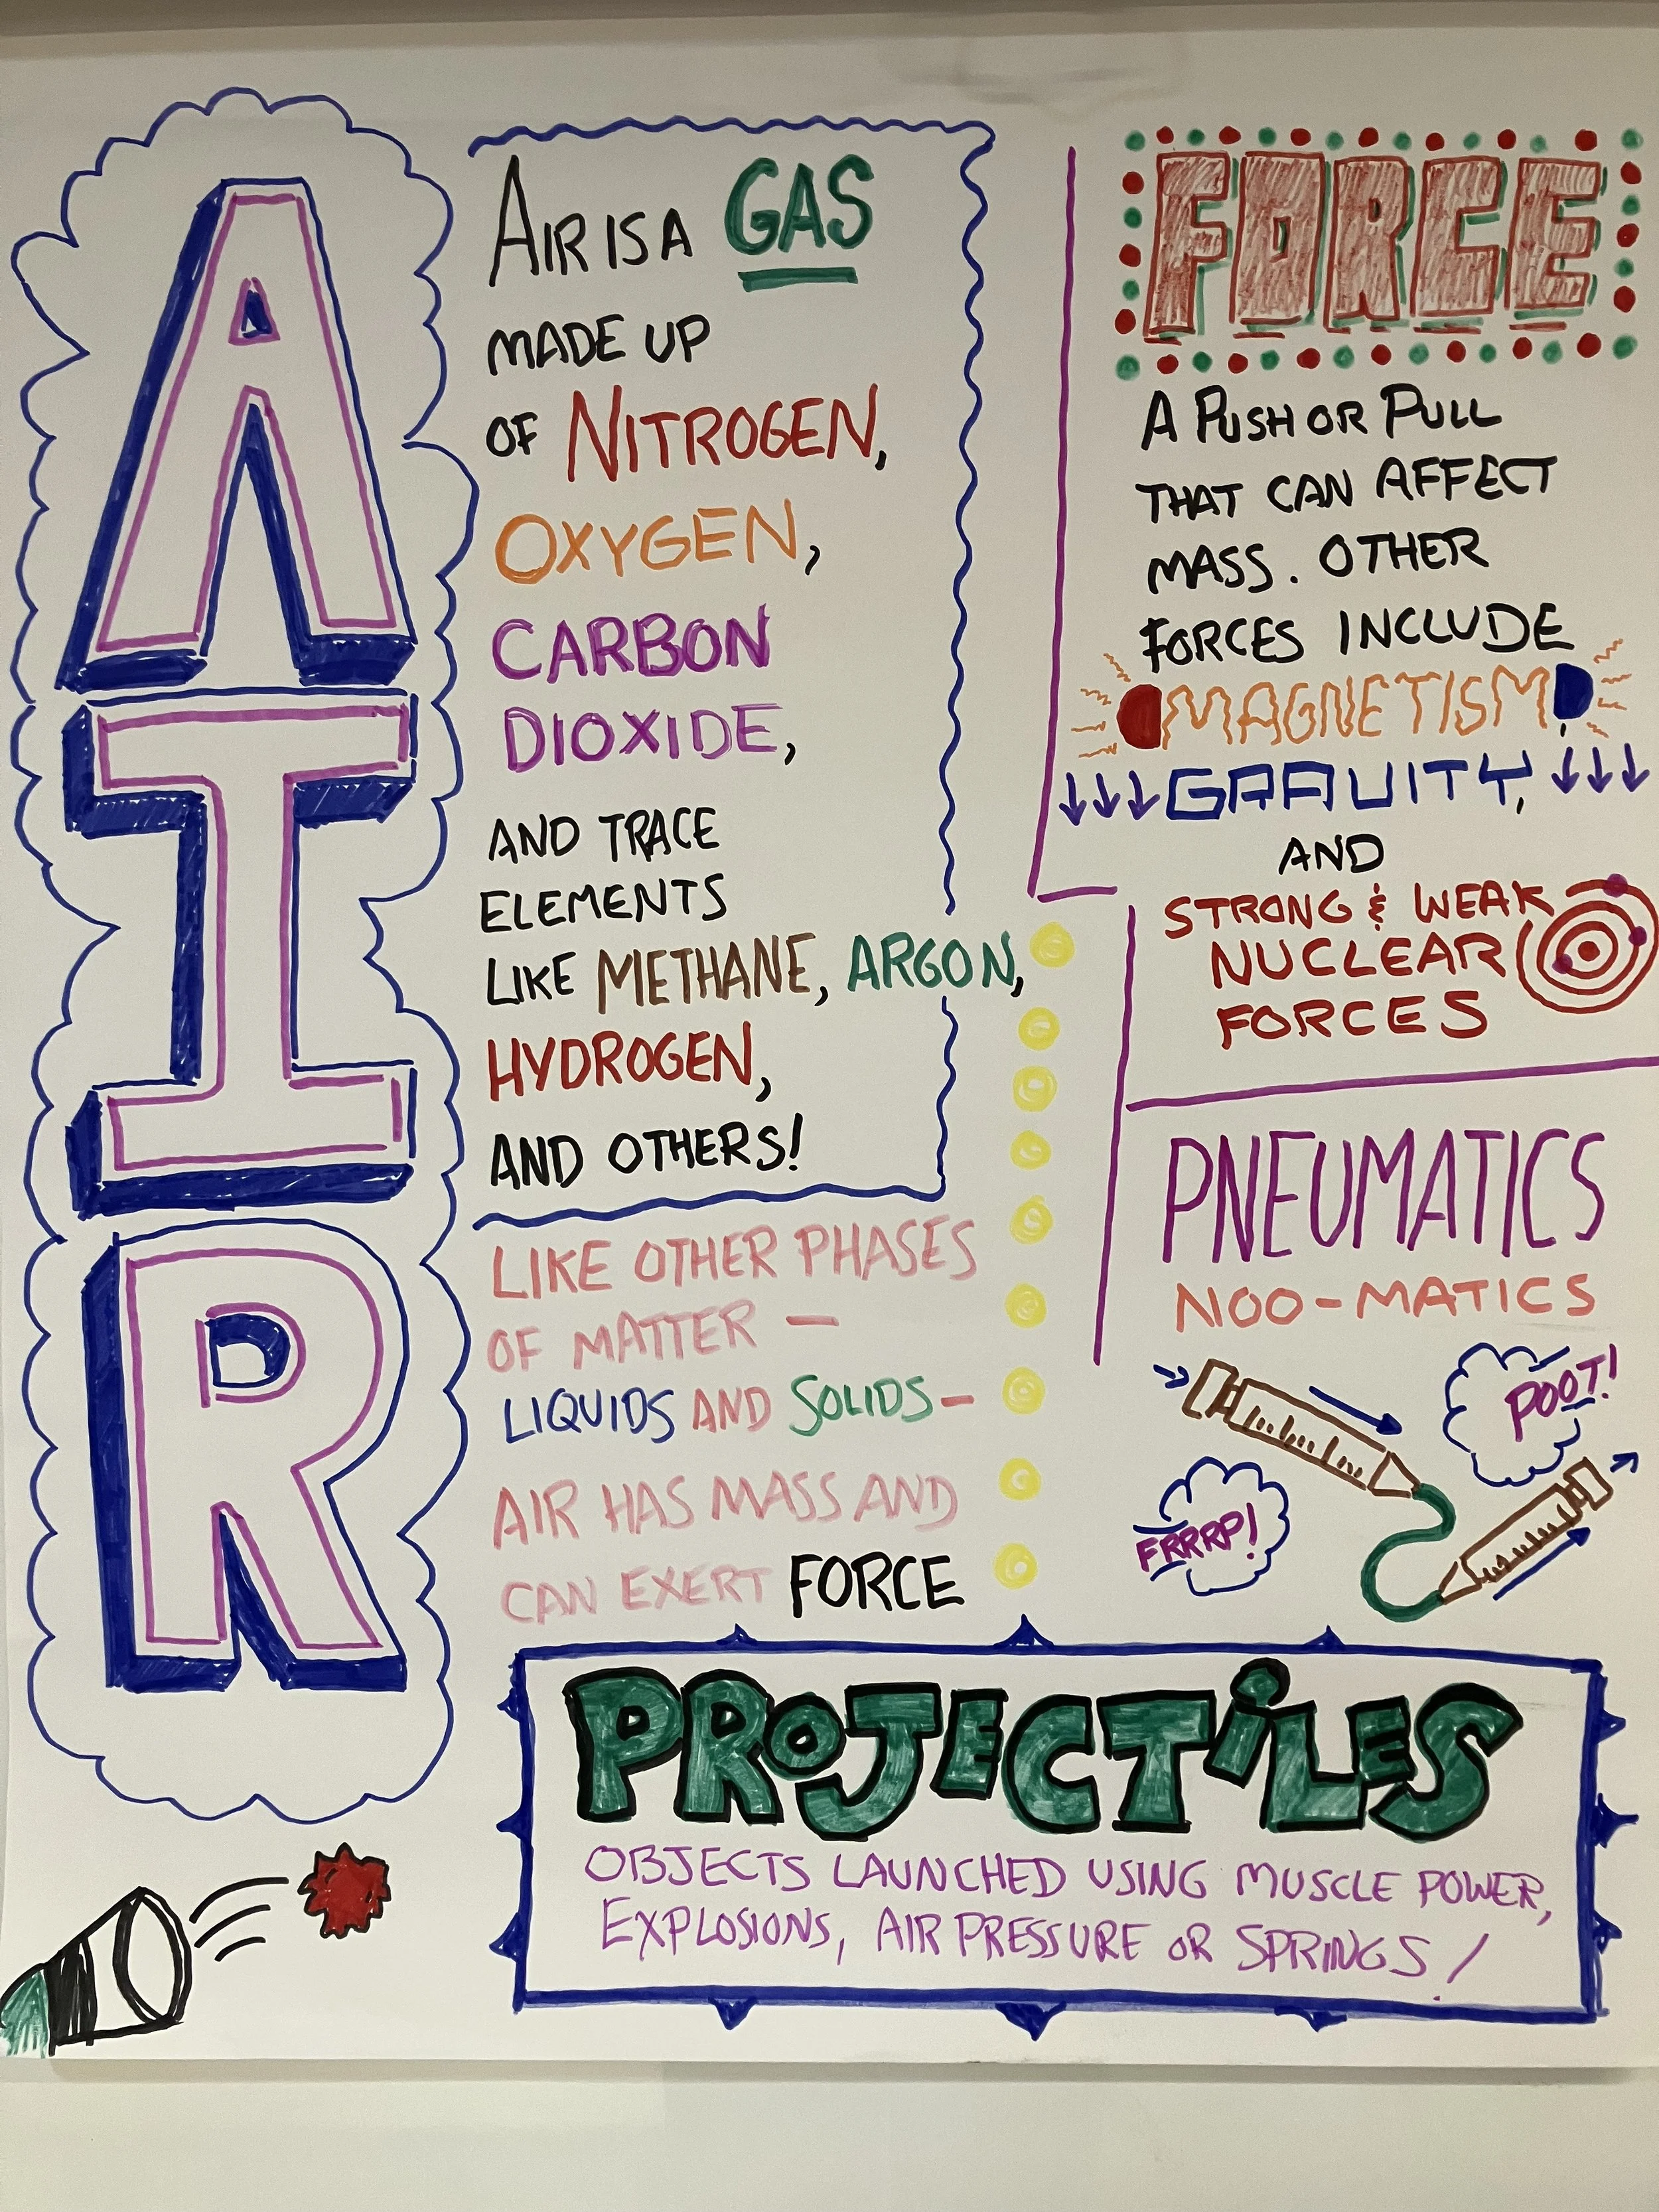 AIR
AIR IS A GAS
MADE UP
OF NITROGEN,
OXYGEN,
CARBON
DIOXIDE,
AND TRACE
ELEMENTS
LIKE METHANE, ARGON,
HYDROGEN,
AND OTHERS!
LIKE OTHER PHASES
OF MATTER —
LIQUIDS AND SOLIDS—
AIR HAS MASS AND
CAN EXERT FORCE
FORCE
A PUSH OR PULL
THAT CAN AFFECT
MASS. OTHER
FORCES INCLUDE
MAGNETISM,
GRAVITY,
AND
STRONG & WEAK
NUCLEAR
FORCES
PNEUMATICS
NOO-MATICS
POOT!
FRRRP!
PROJECTILES
OBJECTS LAUNCHED USING MUSCLE POWER,
EXPLOSIONS, AIR PRESSURE OR SPRINGS!